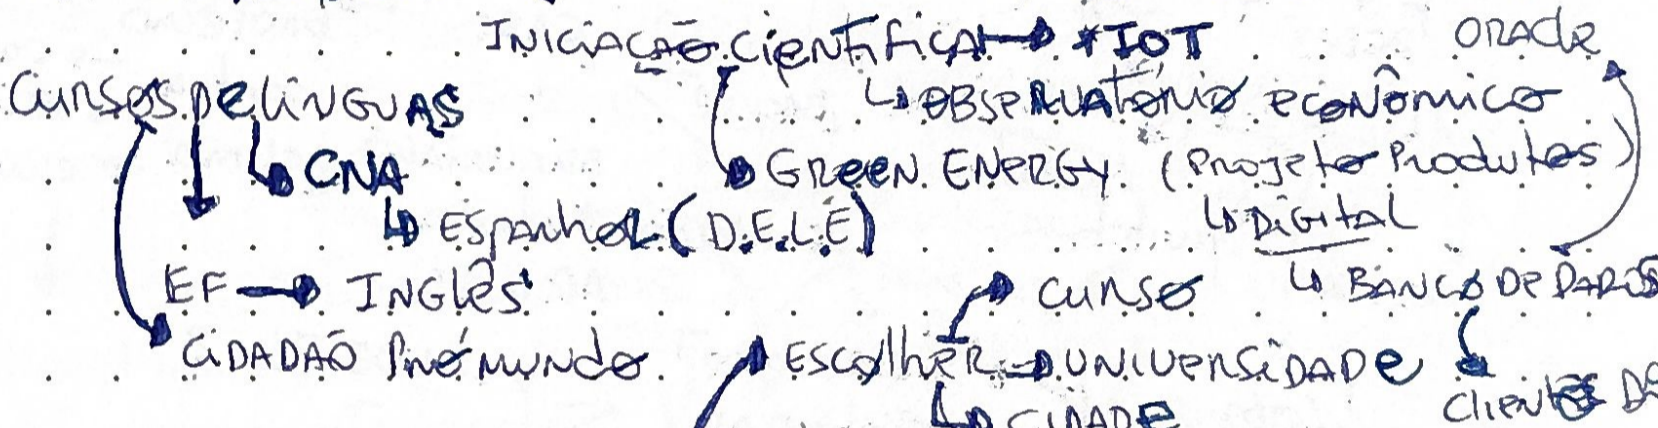 INICIAÇÃO CIENTÍFICA → *IOT ORACLE
CURSOS DE LÍNGUAS ↳ OBSERVATÓRIO ECONÔMICO
↳ CNA GREEN ENERGY (PROJETO PRODUTOS)
↳ ESPANHOL (D.E.L.E) ↳ DIGITAL
EF → INGLÊS → CURSO ↳ BANCO DE DADOS
CIDADÃO PRÓ MUNDO ESCOLHER → UNIVERSIDADE
↳ CIDADE